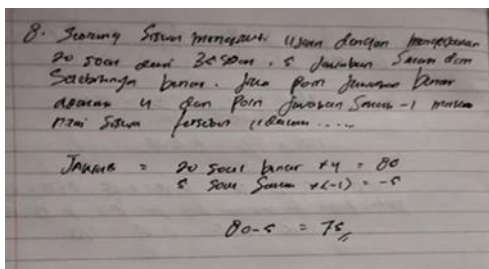 8. Seorang Siswa mengikuti ujian dengan mengerjakan
20 soal dari 35 soal. 5 Jawaban Salah dan
Selebihnya benar. Jika Poin Jawaban benar
adalah 4 dan Poin Jawaban Salah -1 maka
nilai Siswa tersebut adalah .....
JAWAB = 20 soal benar x 4 = 80
5 soal Salah x (-1) = -5
80-5 = 75